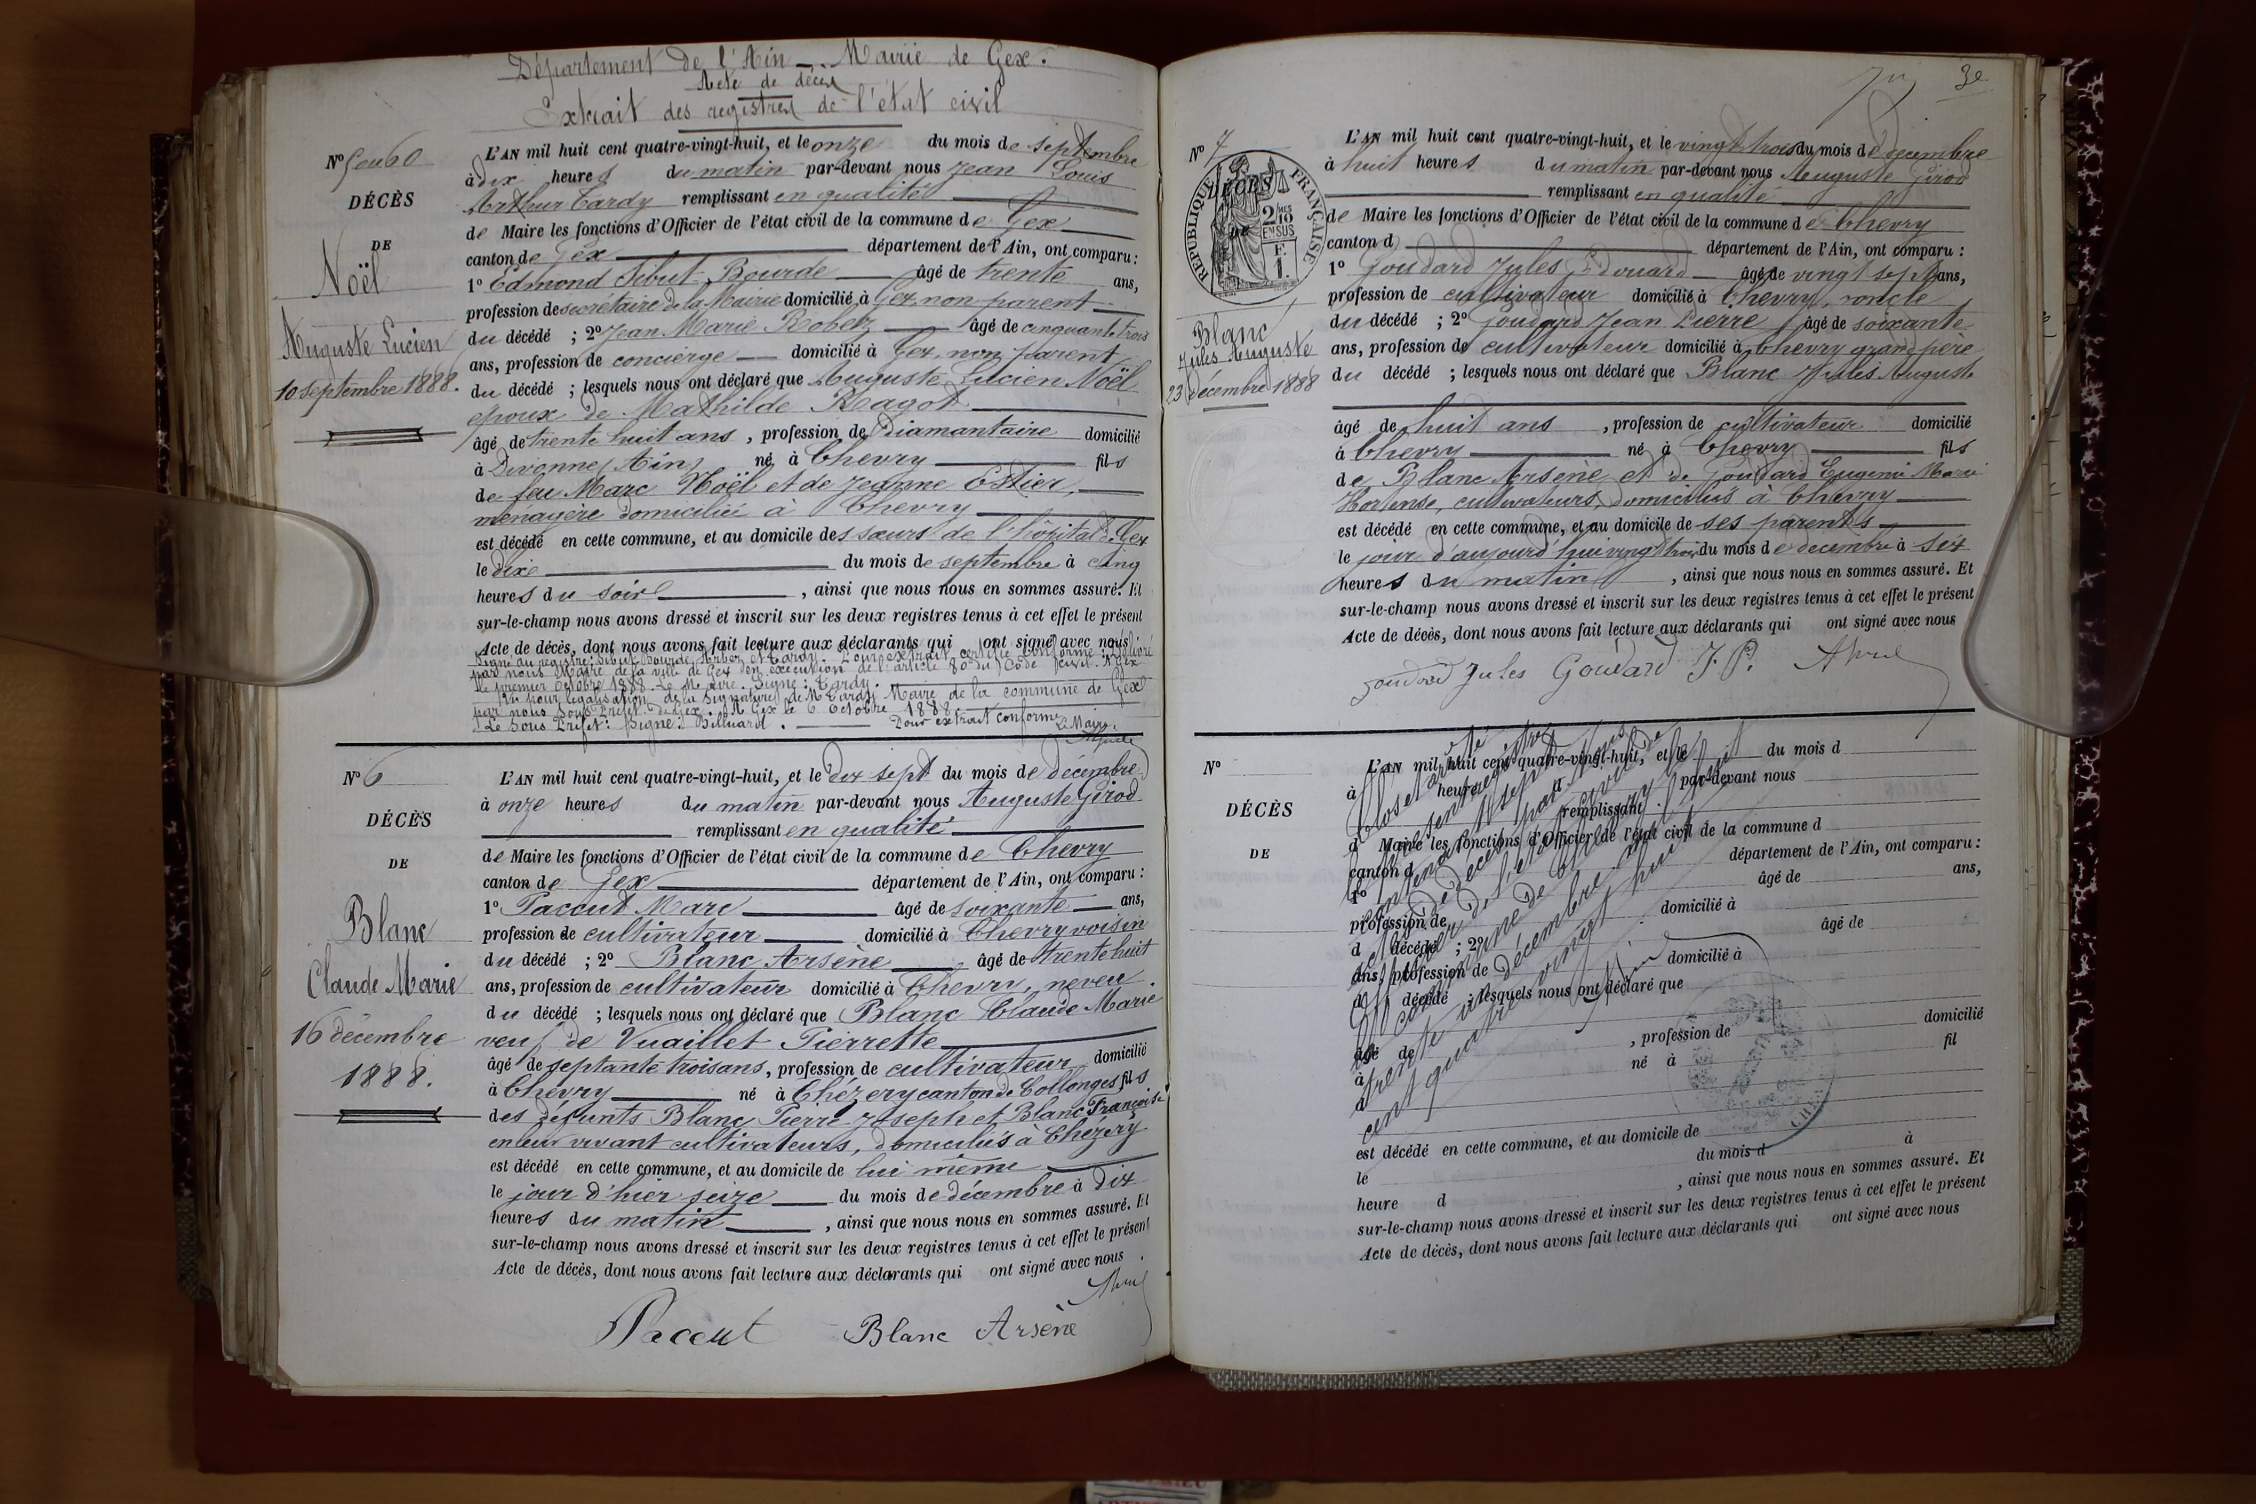 Département de l'Ain — Mairie de Gex.
Acte de décès
Extrait des registres de l'état civil
N° 5 ou 60
DÉCÈS
DE
Noël
Auguste Lucien
10 septembre 1888.
L'AN mil huit cent quatre-vingt-huit, et le onze du mois de septembre
à dix heures du matin par-devant nous Jean Louis
Arthur Tardy remplissant en qualité
de Maire les fonctions d'Officier de l'état civil de la commune de Gex
canton de Gex département de l'Ain, ont comparu :
1° Edmond Sébut Bourde âgé de trente ans,
profession de secrétaire de la Mairie domicilié à Gex non parent
du décédé ; 2° Jean Marie Robez âgé de cinquante trois
ans, profession de concierge domicilié à Gex, non parent
du décédé ; lesquels nous ont déclaré que Auguste Lucien Noël
époux de Mathilde Ragot
âgé de trente huit ans, profession de Diamantaire domicilié
à Divonne (Ain) né à Chevry fils
de feu Marc Noël et de Jeanne Estier,
ménagère domiciliée à Chevry
est décédé en cette commune, et au domicile des sœurs de l'hôpital de Gex
le dix du mois de septembre à cinq
heures du soir, ainsi que nous nous en sommes assuré. Et
sur-le-champ nous avons dressé et inscrit sur les deux registres tenus à cet effet le présent
Acte de décès, dont nous avons fait lecture aux déclarants qui ont signé avec nous
Signé au registre: Sébut Bourde, et Tardy. Pour extrait certifié conforme délivré
par nous Maire de la ville de Gex en exécution de l'article 80 du Code civil. A Gex
le premier octobre 1888. Le Maire. Signé: Tardy.
Vu pour légalisation de la signature de Mr Tardy Maire de la commune de Gex
par nous Sous Préfet de Gex. A Gex le 6 Octobre 1888.
Le Sous Préfet: Signé: Billuard. Pour extrait conforme
Le Maire.
N° 6
DÉCÈS
DE
Blanc
Claude Marie
16 décembre
1888.
L'AN mil huit cent quatre-vingt-huit, et le dix sept du mois de décembre
à onze heures du matin par-devant nous Auguste Girod
remplissant en qualité
de Maire les fonctions d'Officier de l'état civil de la commune de Chevry
canton de Gex département de l'Ain, ont comparu :
1° Paccut Marc âgé de soixante ans,
profession de cultivateur domicilié à Chevry voisin
du décédé ; 2° Blanc Arsène âgé de trente huit
ans, profession de cultivateur domicilié à Chevry, neveu.
du décédé ; lesquels nous ont déclaré que Blanc Claude Marie
veuf de Vuaillet Pierrette
âgé de septante trois ans, profession de cultivateur domicilié
à Chevry né à Chézery canton de Collonges fils
des défunts Blanc Pierre Joseph et Blanc Françoise
en leur vivant cultivateurs, domiciliés à Chézery
est décédé en cette commune, et au domicile de lui même
le jour d'hier seize du mois de décembre à dix
heures du matin, ainsi que nous nous en sommes assuré. Et
sur-le-champ nous avons dressé et inscrit sur les deux registres tenus à cet effet le présent
Acte de décès, dont nous avons fait lecture aux déclarants qui ont signé avec nous.
Paccut Blanc Arsène
30
N° 7
DÉCÈS
DE
RÉPUBLIQUE FRANÇAISE
2/10
EN SUS
Blanc
Jules Auguste
23 décembre 1888
L'AN mil huit cent quatre-vingt-huit, et le vingt trois du mois de décembre
à huit heures du matin par-devant nous Auguste Girod
remplissant en qualité
de Maire les fonctions d'Officier de l'état civil de la commune de Chevry
canton d département de l'Ain, ont comparu :
1° Goudard Jules Edouard âgé de vingt sept ans,
profession de cultivateur domicilié à Chevry, oncle
du décédé ; 2° Goudard Jean Pierre âgé de soixante
ans, profession de cultivateur domicilié à Chevry grand père
du décédé ; lesquels nous ont déclaré que Blanc Jules Auguste
âgé de huit ans, profession de cultivateur domicilié
à Chevry né à Chevry fils
de Blanc Arsène et de Goudard Eugénie Marie
Hortense, cultivateurs, domiciliés à Chevry
est décédé en cette commune, et au domicile de ses parents
le jour d'aujourd'hui vingt trois du mois de décembre à six
heures du matin, ainsi que nous nous en sommes assuré. Et
sur-le-champ nous avons dressé et inscrit sur les deux registres tenus à cet effet le présent
Acte de décès, dont nous avons fait lecture aux déclarants qui ont signé avec nous
Goudard Jules Goudard J. P.
N°
DÉCÈS
DE
L'AN mil huit cent quatre-vingt-huit, et le du mois d
à heure par-devant nous
remplissant
d Maire les fonctions d'Officier de l'état civil de la commune d
canton d département de l'Ain, ont comparu :
1° âgé de ans,
profession de domicilié à
d décédé ; 2° âgé de
ans, profession de domicilié à
d décédé ; lesquels nous ont déclaré que
âgé de , profession de domicilié
à né à fil
est décédé en cette commune, et au domicile de
le du mois d à
heure d , ainsi que nous nous en sommes assuré. Et
sur-le-champ nous avons dressé et inscrit sur les deux registres tenus à cet effet le présent
Acte de décès, dont nous avons fait lecture aux déclarants qui ont signé avec nous
Clos et arrêté
le présent registre
contenant sept
actes de décès par nous
Officier de l'état civil de
la commune de Chevry le
trente un décembre mil huit
cent quatre vingt huit